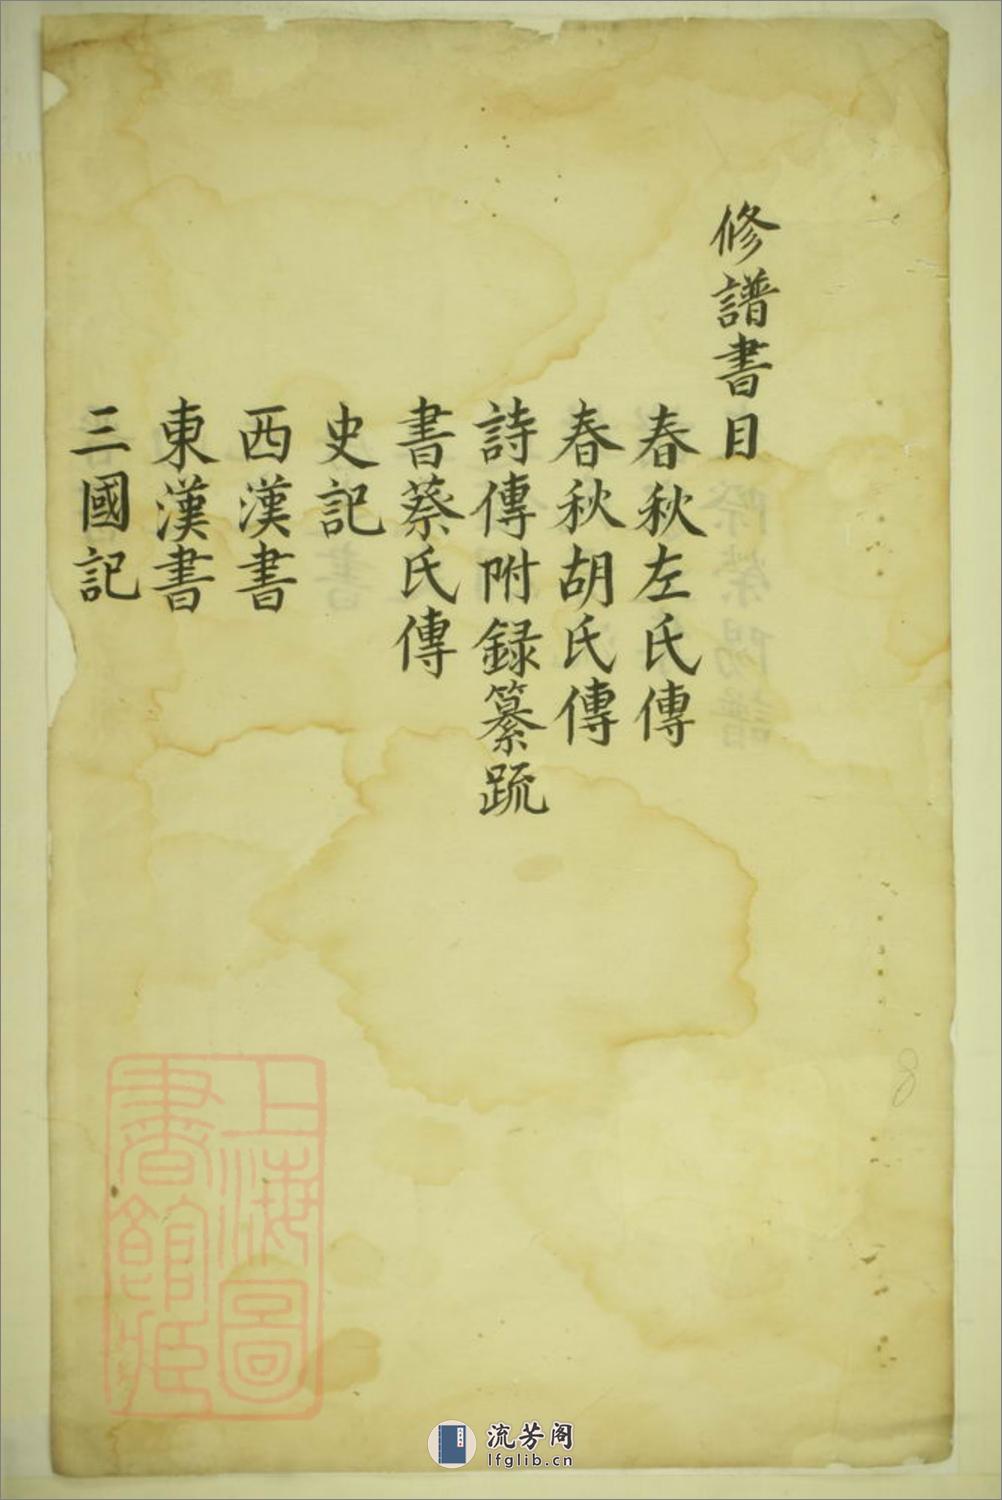 修譜書目
春秋左氏傳
春秋胡氏傳
詩傳附録纂䟽
書蔡氏傳
史記
西漢書
東漢書
三國記
上海圖
書館藏
8
流芳阁
lfglib.cn